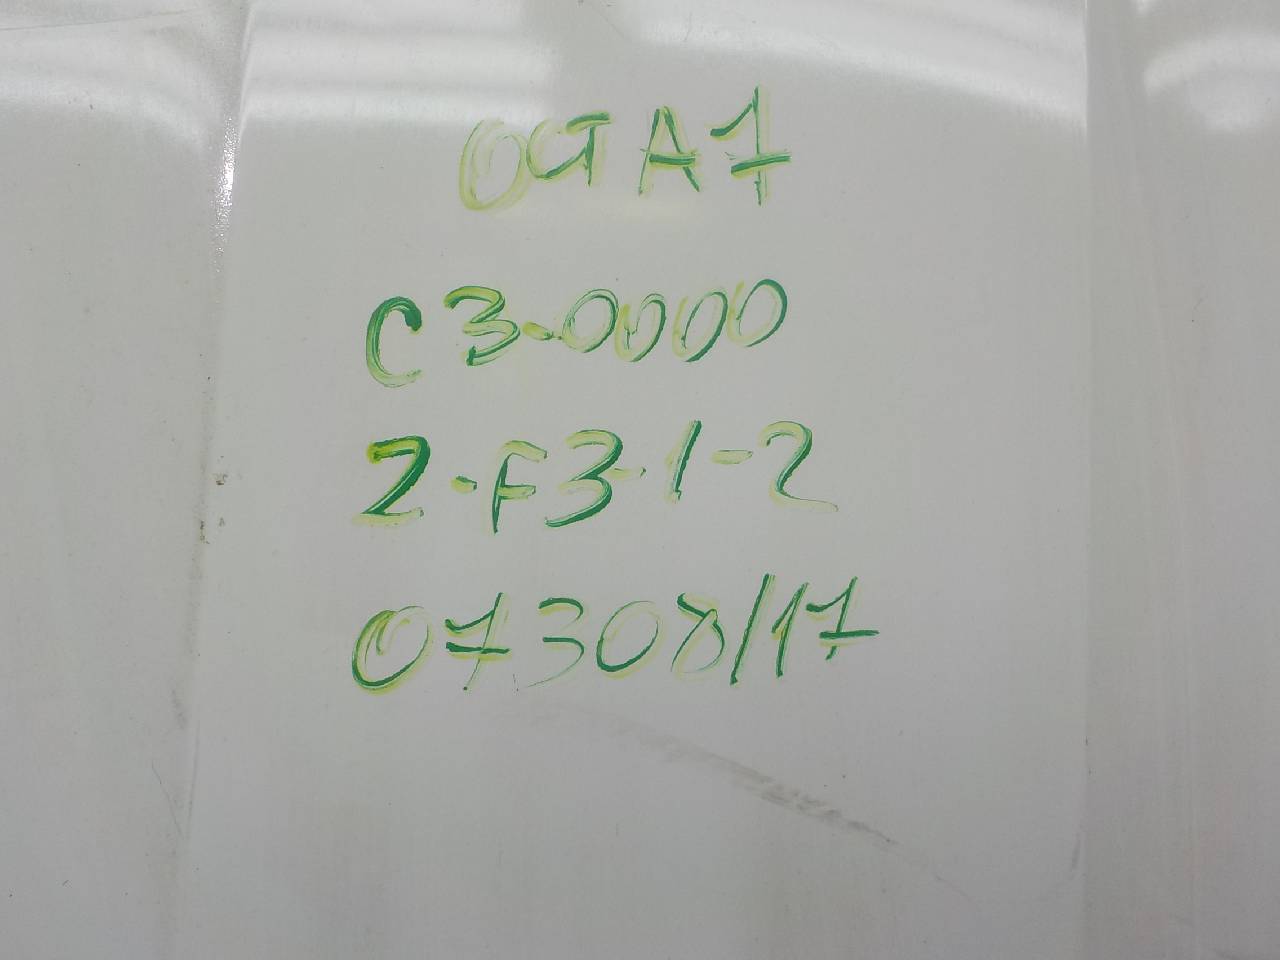 OGA7
C3-0000
2-F3-1-2
07308/17